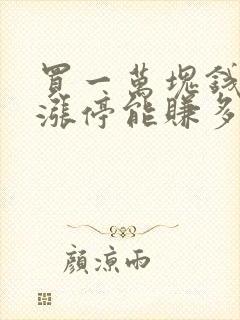 買一萬塊錢
漲停能賺多
顏涼雨